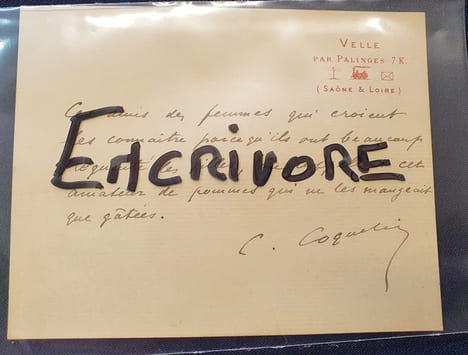 VELLE
PAR PALINGES 7 K.
(SAÔNE & LOIRE)
Ces amis des femmes qui croient
les connaître parcequ'ils ont beaucoup
ENCRIVORE
cet
amateur de pommes qui ne les mangeait
que gâtées.
C. Coquelin